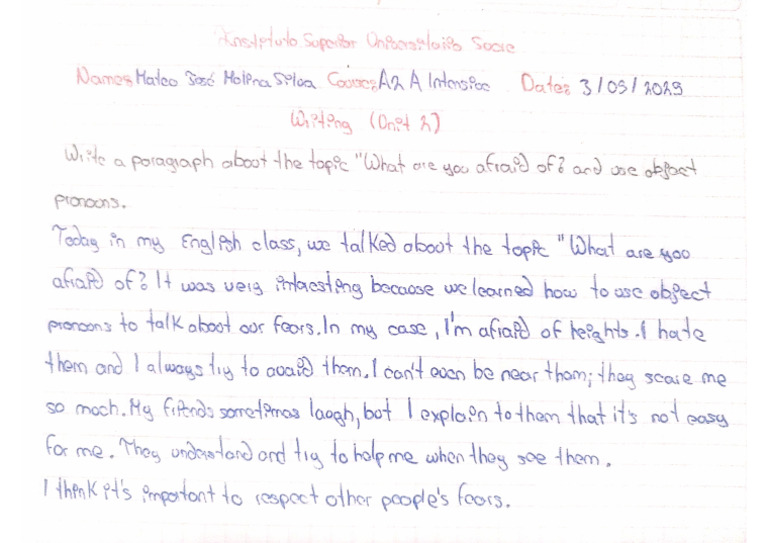 Instituto Superior Universitario Sucre
Name: Mateo José Molina Silva Course: A2 A Intensive Date: 3/05/2025
Writing (Unit 2)
Write a paragraph about the topic "What are you afraid of? and use object
pronouns.
Today in my English class, we talked about the topic "What are you
afraid of? It was very interesting because we learned how to use object
pronouns to talk about our fears. In my case, I'm afraid of heights. I hate
them and I always try to avoid them. I can't even be near them; they scare me
so much. My friends sometimes laugh, but I explain to them that it's not easy
for me. They understand and try to help me when they see them.
I think it's important to respect other people's fears.